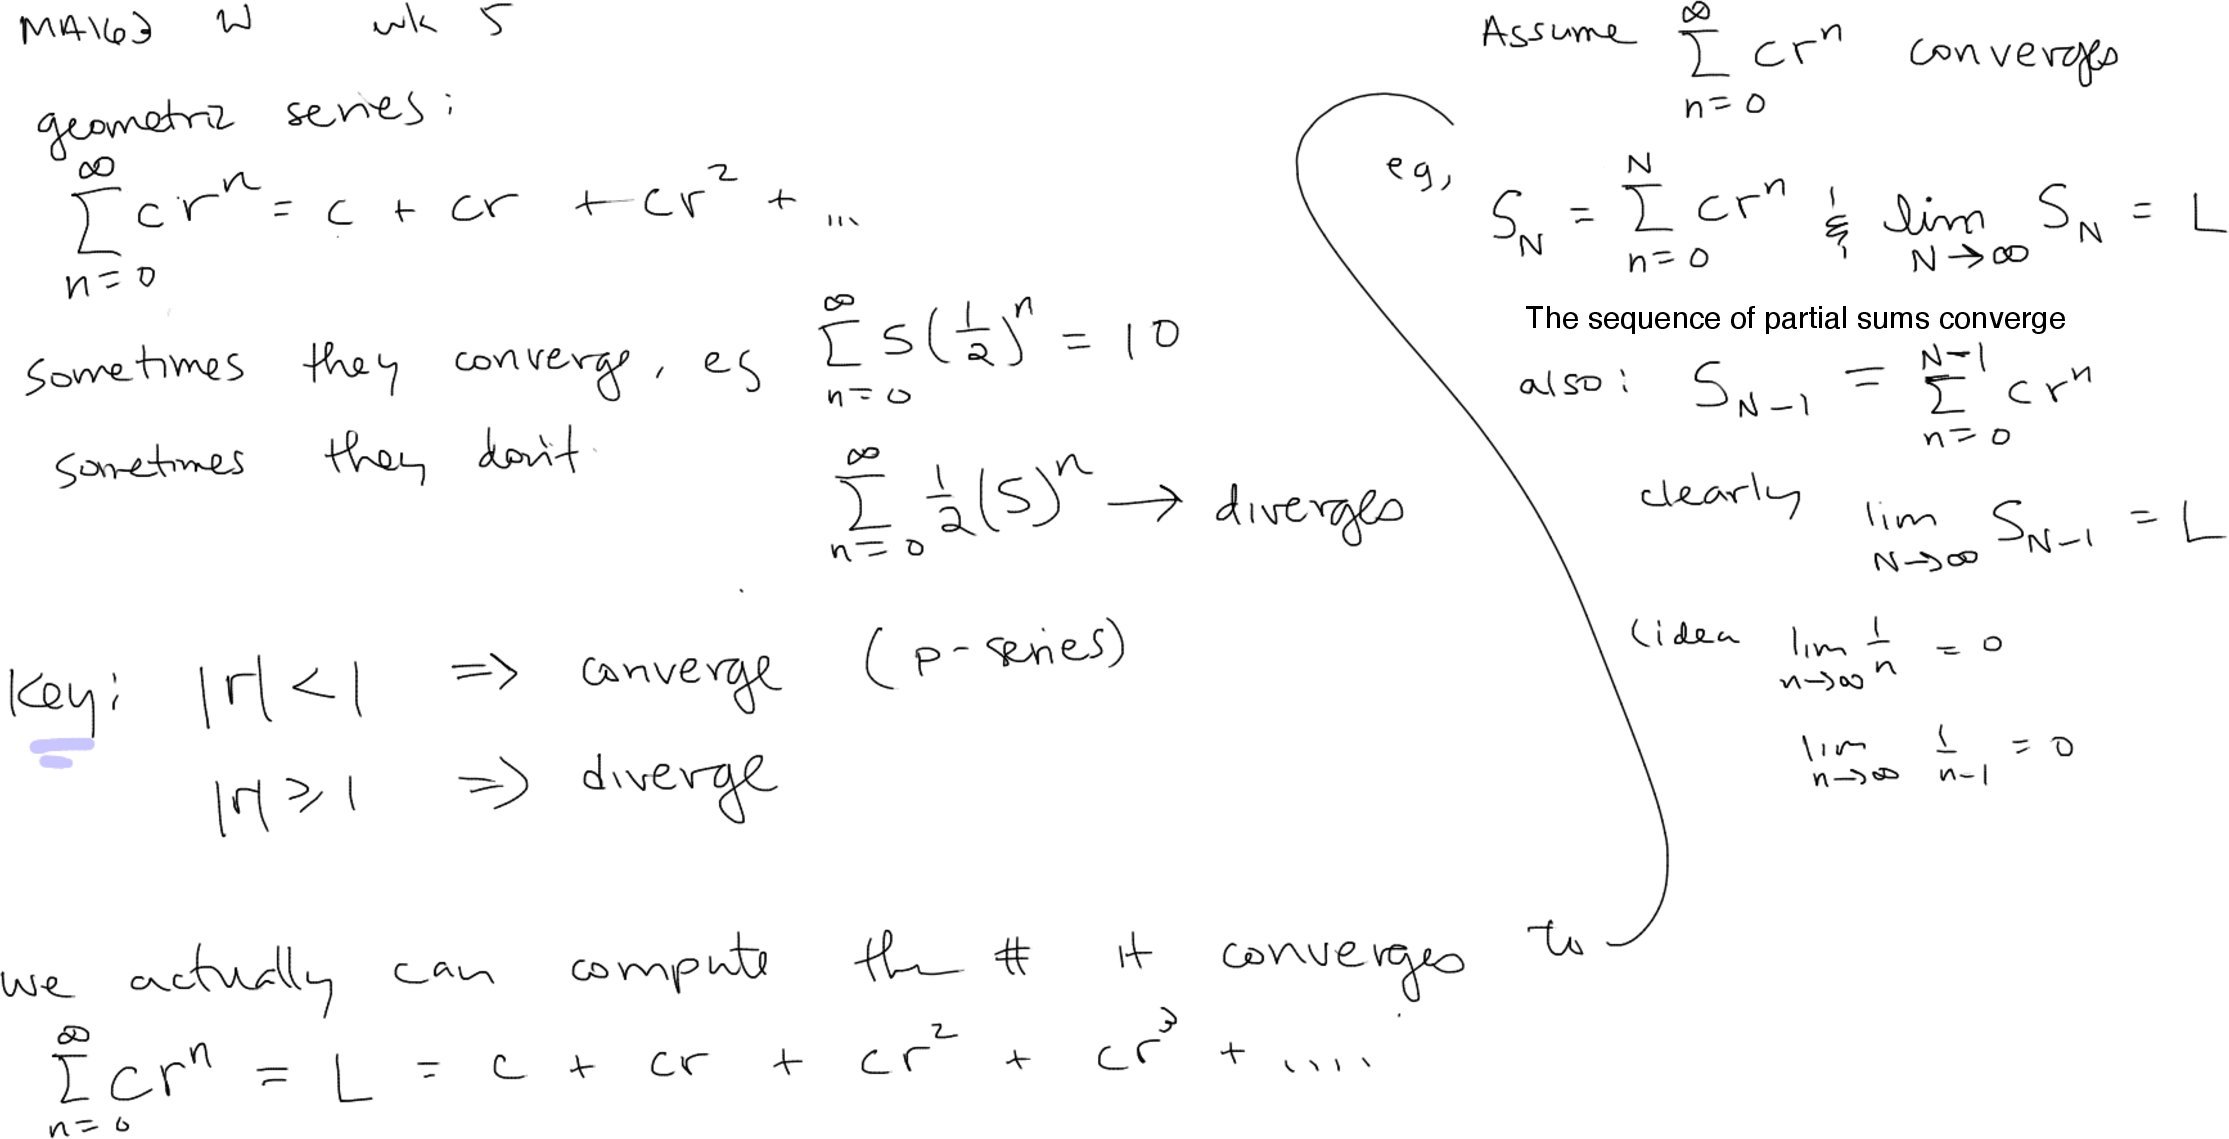 MA163 W wk 5
geometric series:
∞
∑ cr^n = c + cr + cr^2 + ...
n=0
sometimes they converge, eg ∑_{n=0}^{∞} 5(1/2)^n = 10
sometimes they don't.
∑_{n=0}^{∞} 1/2 (5)^n → diverges
Key: |r| < 1 => converge (p-series)
|r| ≥ 1 => diverge
we actually can compute the # it converges to
∑_{n=0}^{∞} cr^n = L = c + cr + cr^2 + cr^3 + ....
Assume ∑_{n=0}^{∞} cr^n converges
eg, S_N = ∑_{n=0}^{N} cr^n & lim_{N→∞} S_N = L
The sequence of partial sums converge
also: S_{N-1} = ∑_{n=0}^{N-1} cr^n
clearly lim_{N→∞} S_{N-1} = L
(idea lim_{n→∞} 1/n = 0
lim_{n→∞} 1/(n-1) = 0